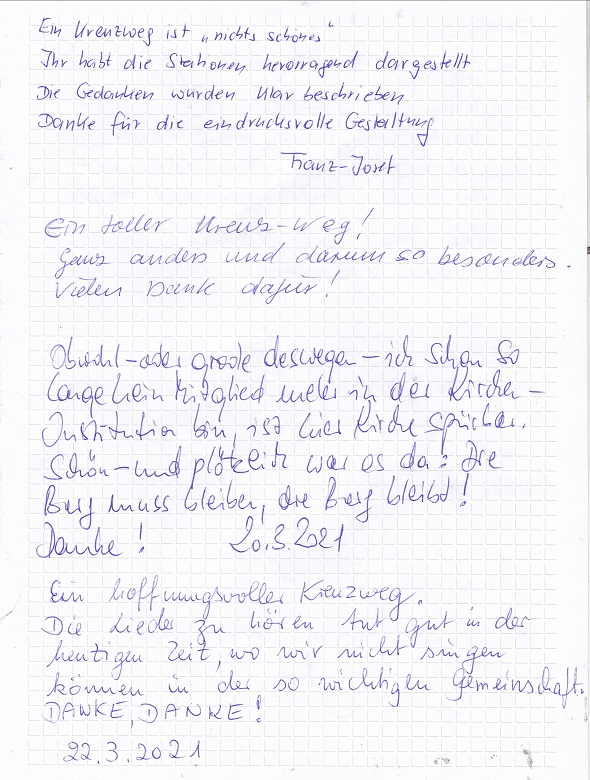 Ein Kreuzweg ist „nichts schönes"
Ihr habt die Stationen hervorragend dargestellt
Die Gedanken wurden klar beschrieben
Danke für die eindrucksvolle Gestaltung
Franz-Josef
Ein toller Kreuz-Weg!
Ganz anders und darum so besonders.
Vielen Dank dafür!
Obwohl - oder grade deswegen - ich schon so
lange kein Mitglied mehr in der Kirchen-
Institution bin, ist hier Kirche spürbar.
Schön - und plötzlich war es da: Die
Burg muss bleiben, die Burg bleibt!
Danke! 20.3.2021
Ein hoffnungsvoller Kreuzweg.
Die Lieder zu hören tut gut in der
heutigen Zeit, wo wir nicht singen
können in der so wichtigen Gemeinschaft.
DANKE, DANKE!
22.3.2021